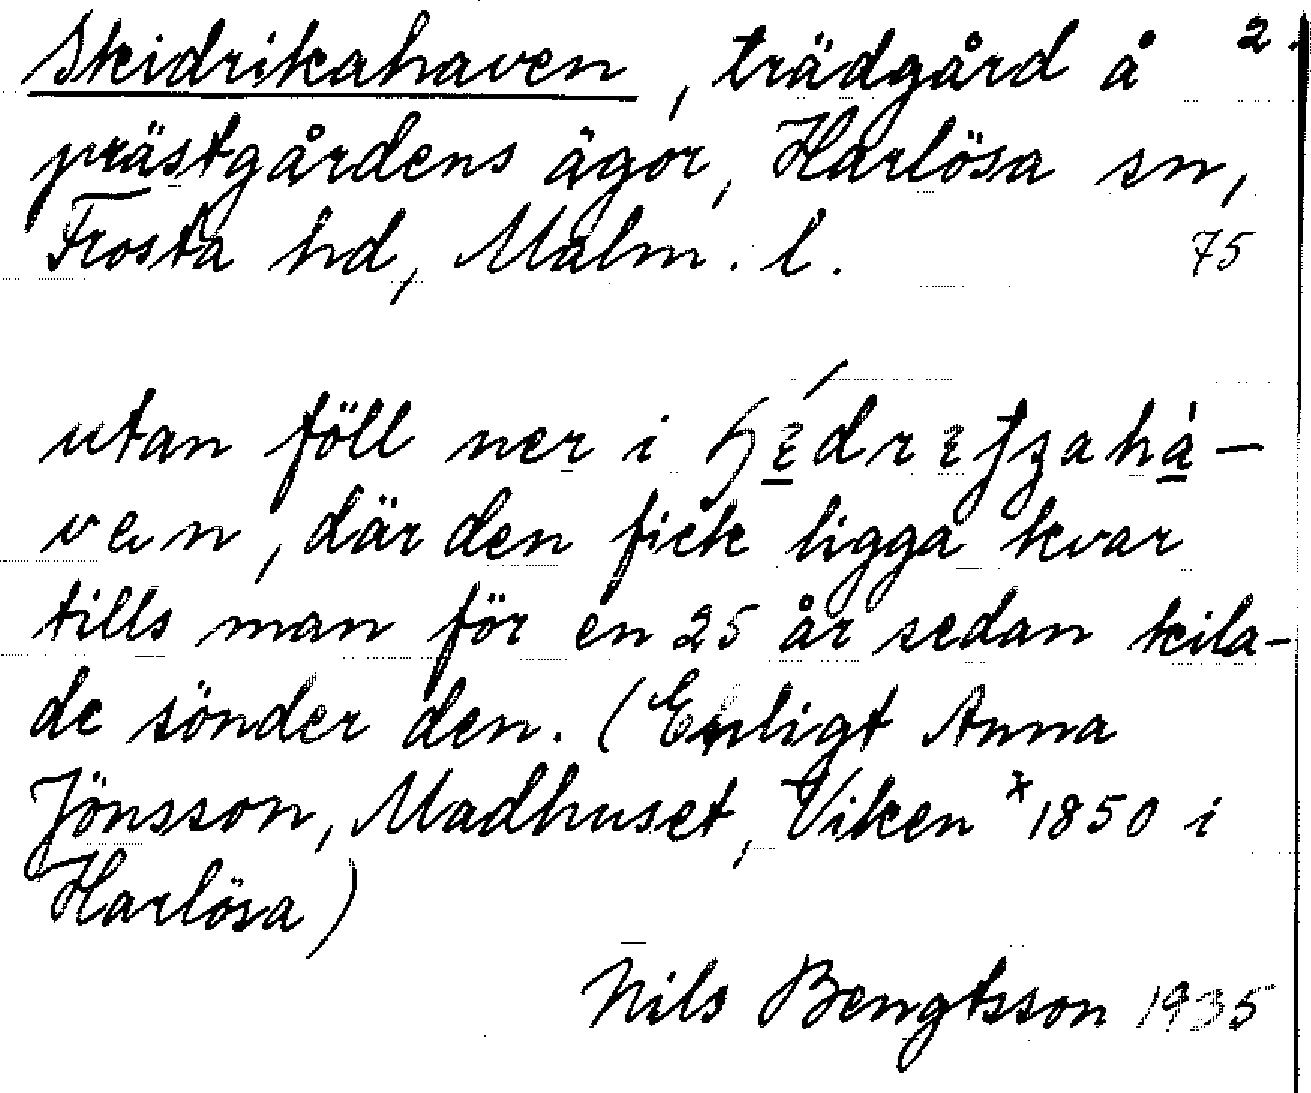 Skidrikahaven, trädgård å 2.
prästgårdens ägor, Harlösa sn,
Frosta hd, Malm. l. 75
utan föll ner i
där den fick ligga kvar
tills man för en 25 år sedan kila-
de sönder den. (Enligt Anna
Jönsson, Madhuset, Viken *1850 i
Harlösa)
Nils Bengtsson 1935